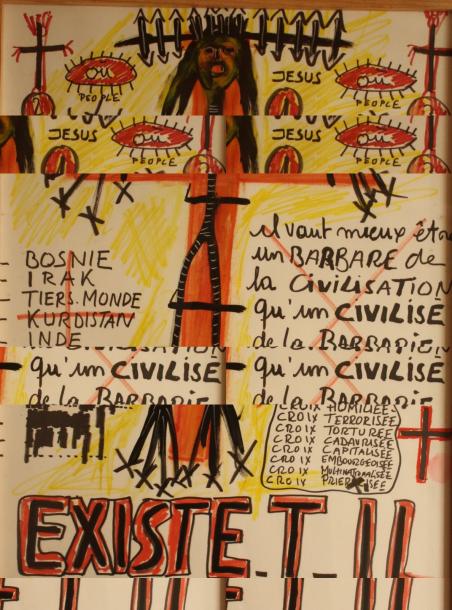 OÙ
PEOPLE
JESUS
OÙ
PEOPLE
JESUS
OÙ
PEOPLE
JESUS
OÙ
PEOPLE
BOSNIE
IRAK
TIERS. MONDE
KURDISTAN
INDE
il vaut mieux être
un BARBARE de
la CIVILISATION
qu'un CIVILISÉ
de la BARBARIE
qu'un CIVILISÉ
de la BARBARIE
qu'un CIVILISÉ
de la BARBARIE
CROIX HUMILIÉE
CROIX TERRORISÉE
CROIX TORTURÉE
CROIX CADAVRISÉE
CROIX CAPITALISÉE
CROIX EMBOURGEOISÉE
CROIX MULTINATIONALISÉE
CROIX
EXISTE-T-IL